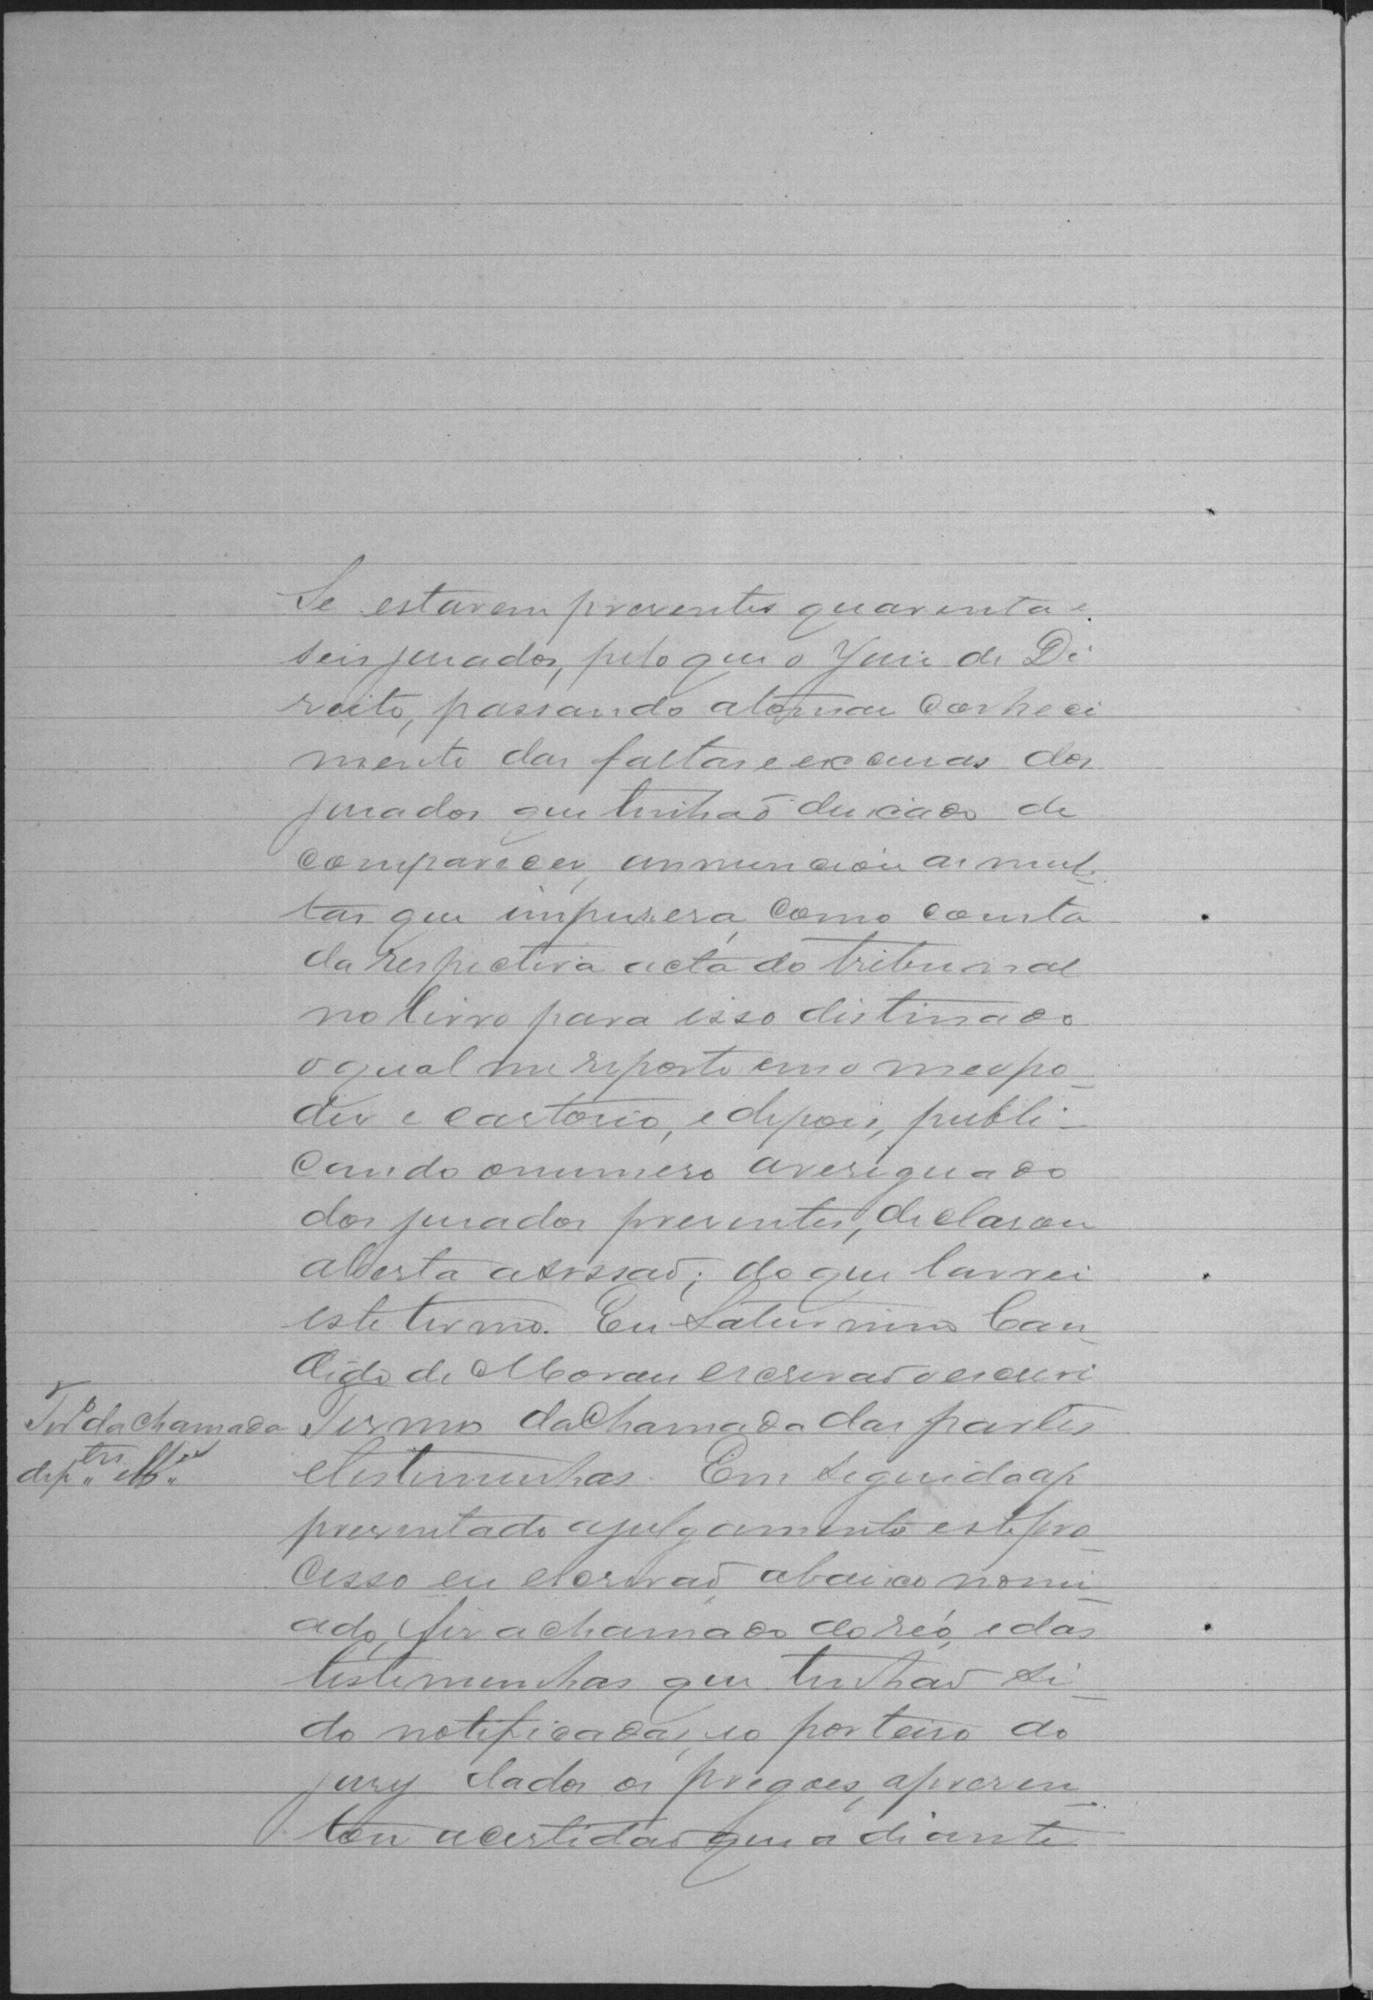 se estarem presentes quarenta e
seis jurados, pelo que o Juiz de Di
reito, passando a tomar conheci
mento das faltas e excusas dos
jurados que tinhaõ deixado de
comparecer, annunciou as mul-
tas que impusera, como consta
da respectiva acta do tribunal
no livro para isso distinado
o qual me reporto em o meo po-
der e cartorio, e depois, publi-
cando o numero averiguado
dos jurados presentes, declarou
aberta a sessaõ; do que lavrei
este termo. Eu Saturnino Can-
dido de Moraes escrivaõ o escrevi
Trº da chamada
das p.tes e
Termo da chamada das partes
e testimunhas. Em seguida ap
presentado a julgamento este pro-
cesso eu escrivaõ, abaixo nomi-
ado, fiz a chamada do réo, e das
testimunhas que tinhaõ si-
do notificadas, e o porteiro do
jury dados os pregoes, apresen-
tou a certidaõ que a diante